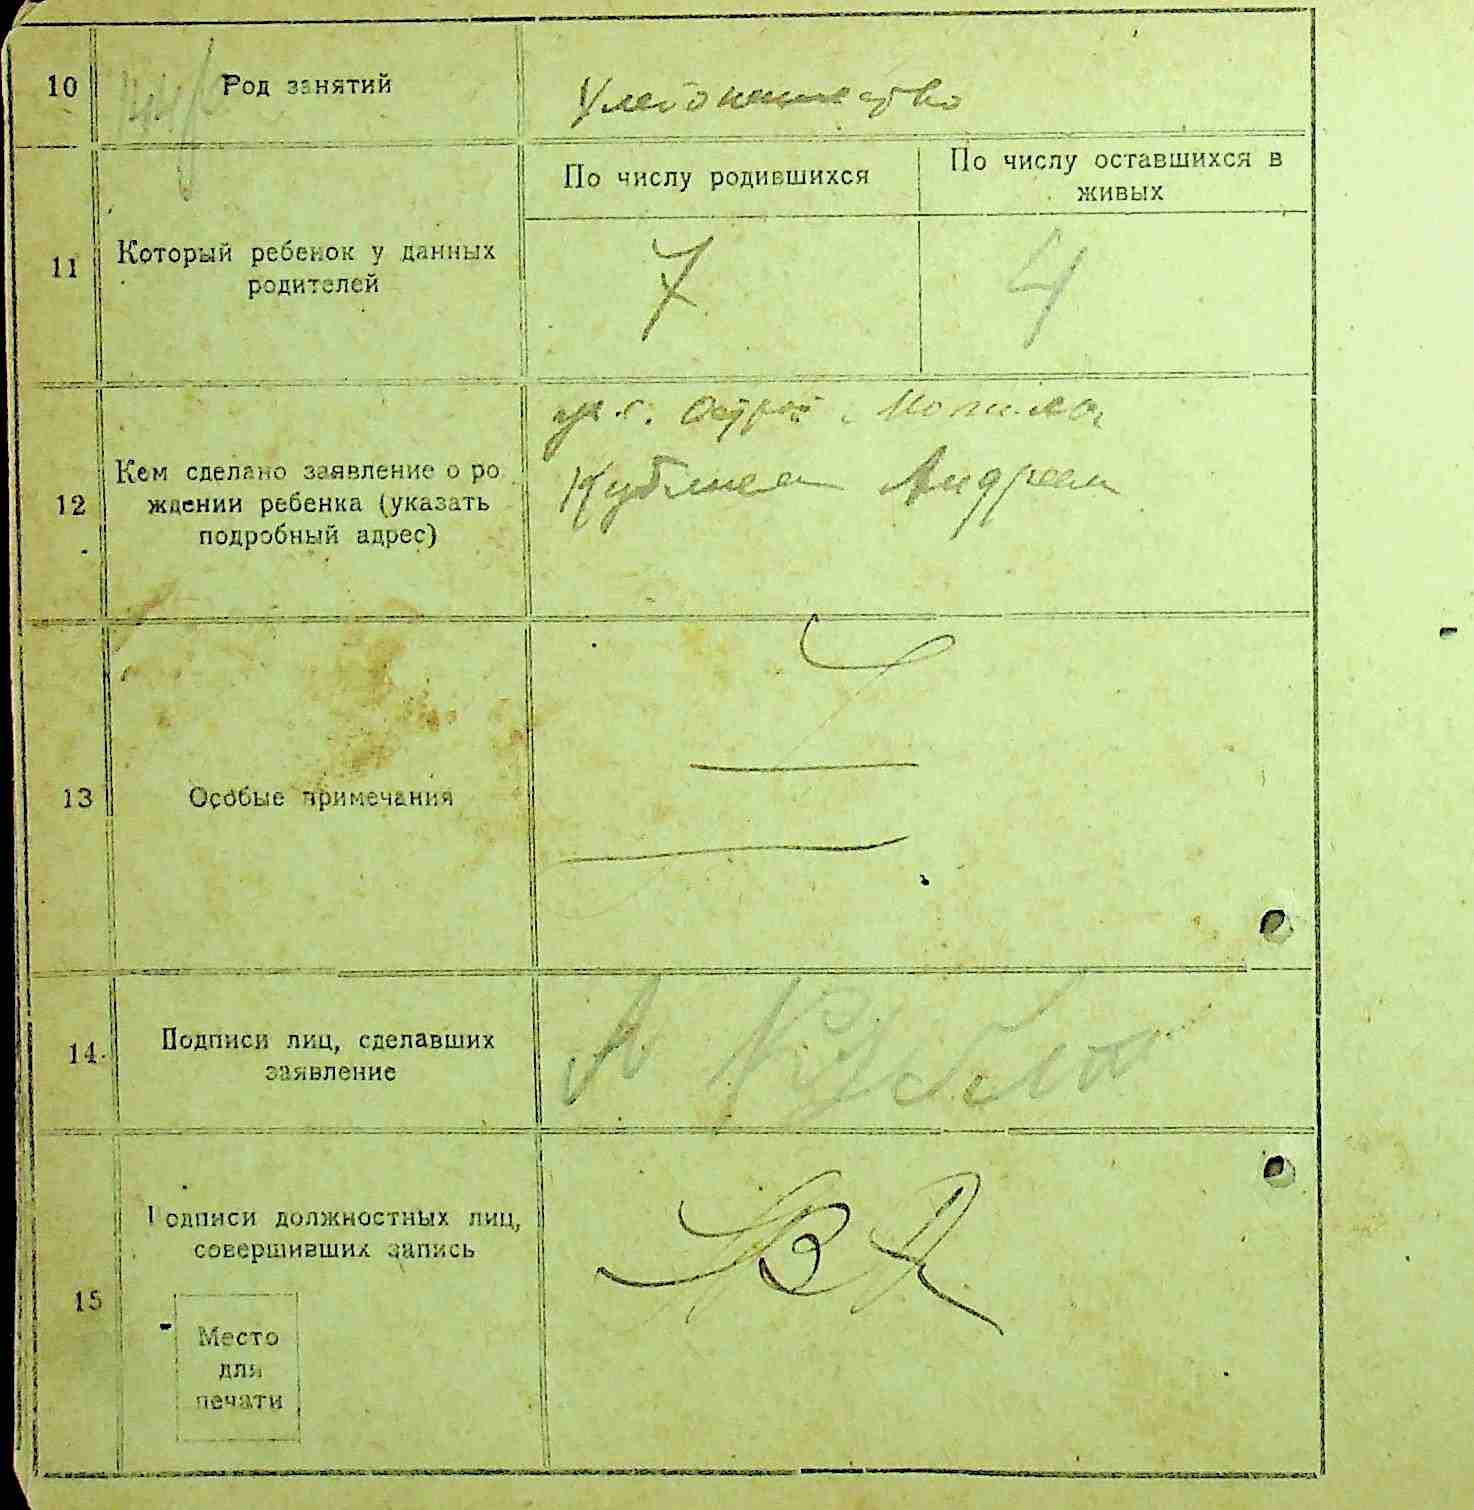 10
Род занятий
11
По числу родившихся
По числу оставшихся в
живых
Который ребенок у данных
родителей
7
4
12
Кем сделано заявление о ро
ждении ребенка (указать
подробный адрес)
Андрей
13
Особые примечания
14
Подписи лиц, сделавших
заявление
15
Подписи должностных лиц,
совершивших запись
Место
для
печати